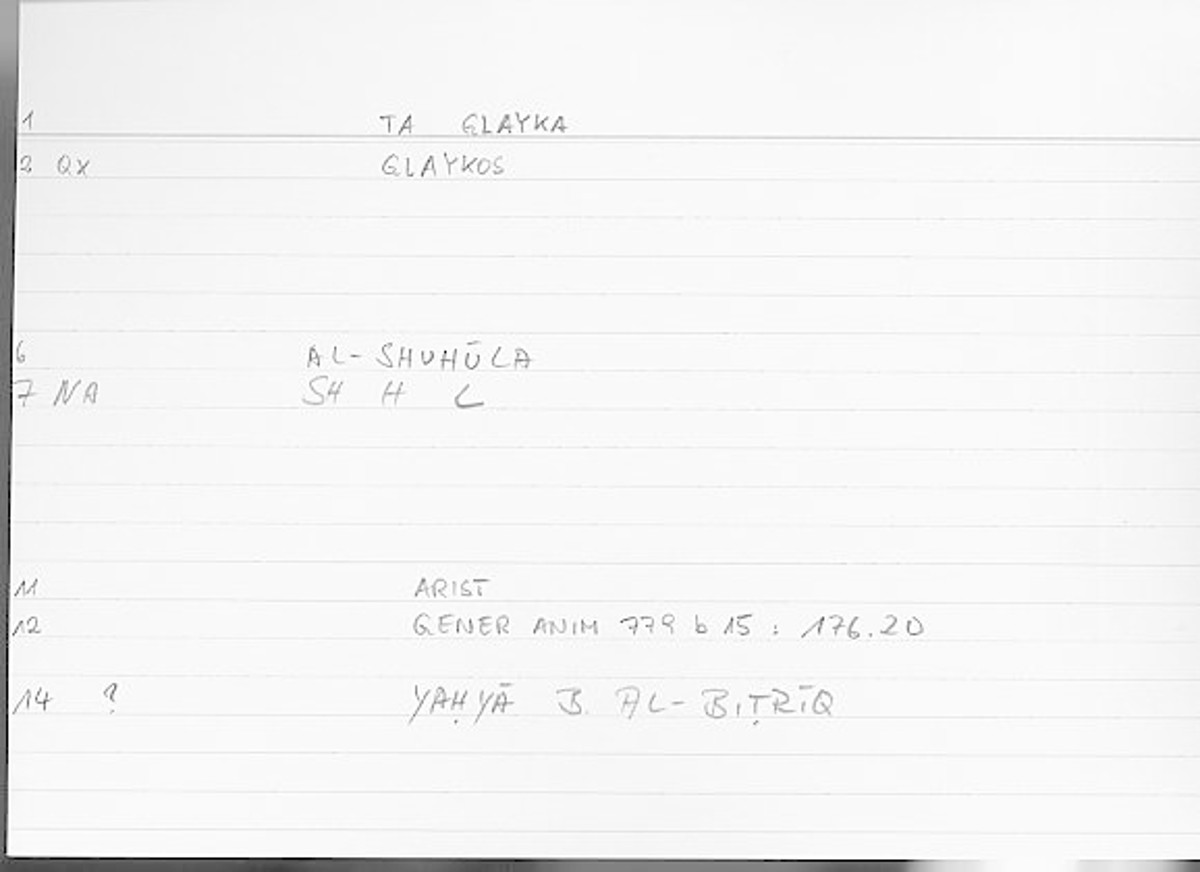 1 TA GLAYKA
2 QX GLAYKOS
6 AL-SHUHŪLA
7 NA SH H L
11 ARIST
12 GENER ANIM 779 b 15 : 176.20
14 ? YAḤYĀ B. AL-BIṬRĪQ